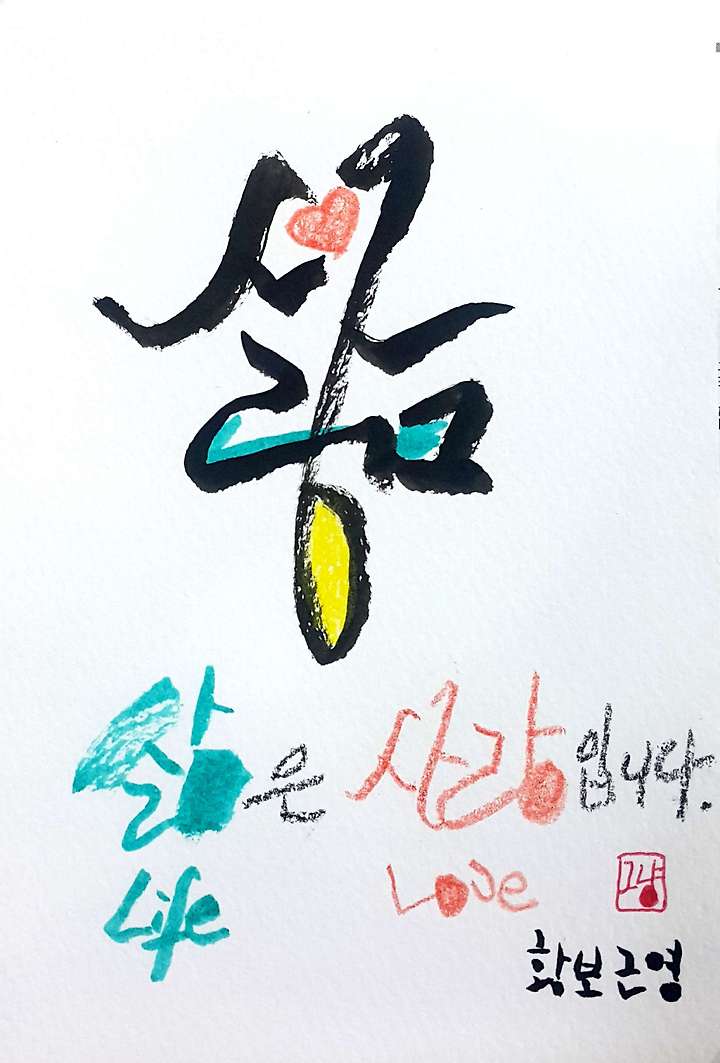 삶
삶은 사랑입니다.
Life Love
그냥
황보근영